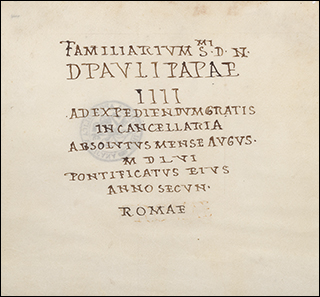 FAMILIARIVM Sᴹᴵ·D·N·
D PAVLI PAPAE
IIII
AD EXPEDIENDVM GRATIS
IN CANCELLARIA
ABSOLVTVS MENSE AVGVS·
M D LVI
PONTIFICATVS EIVS
ANNO SECVN·
ROMAE